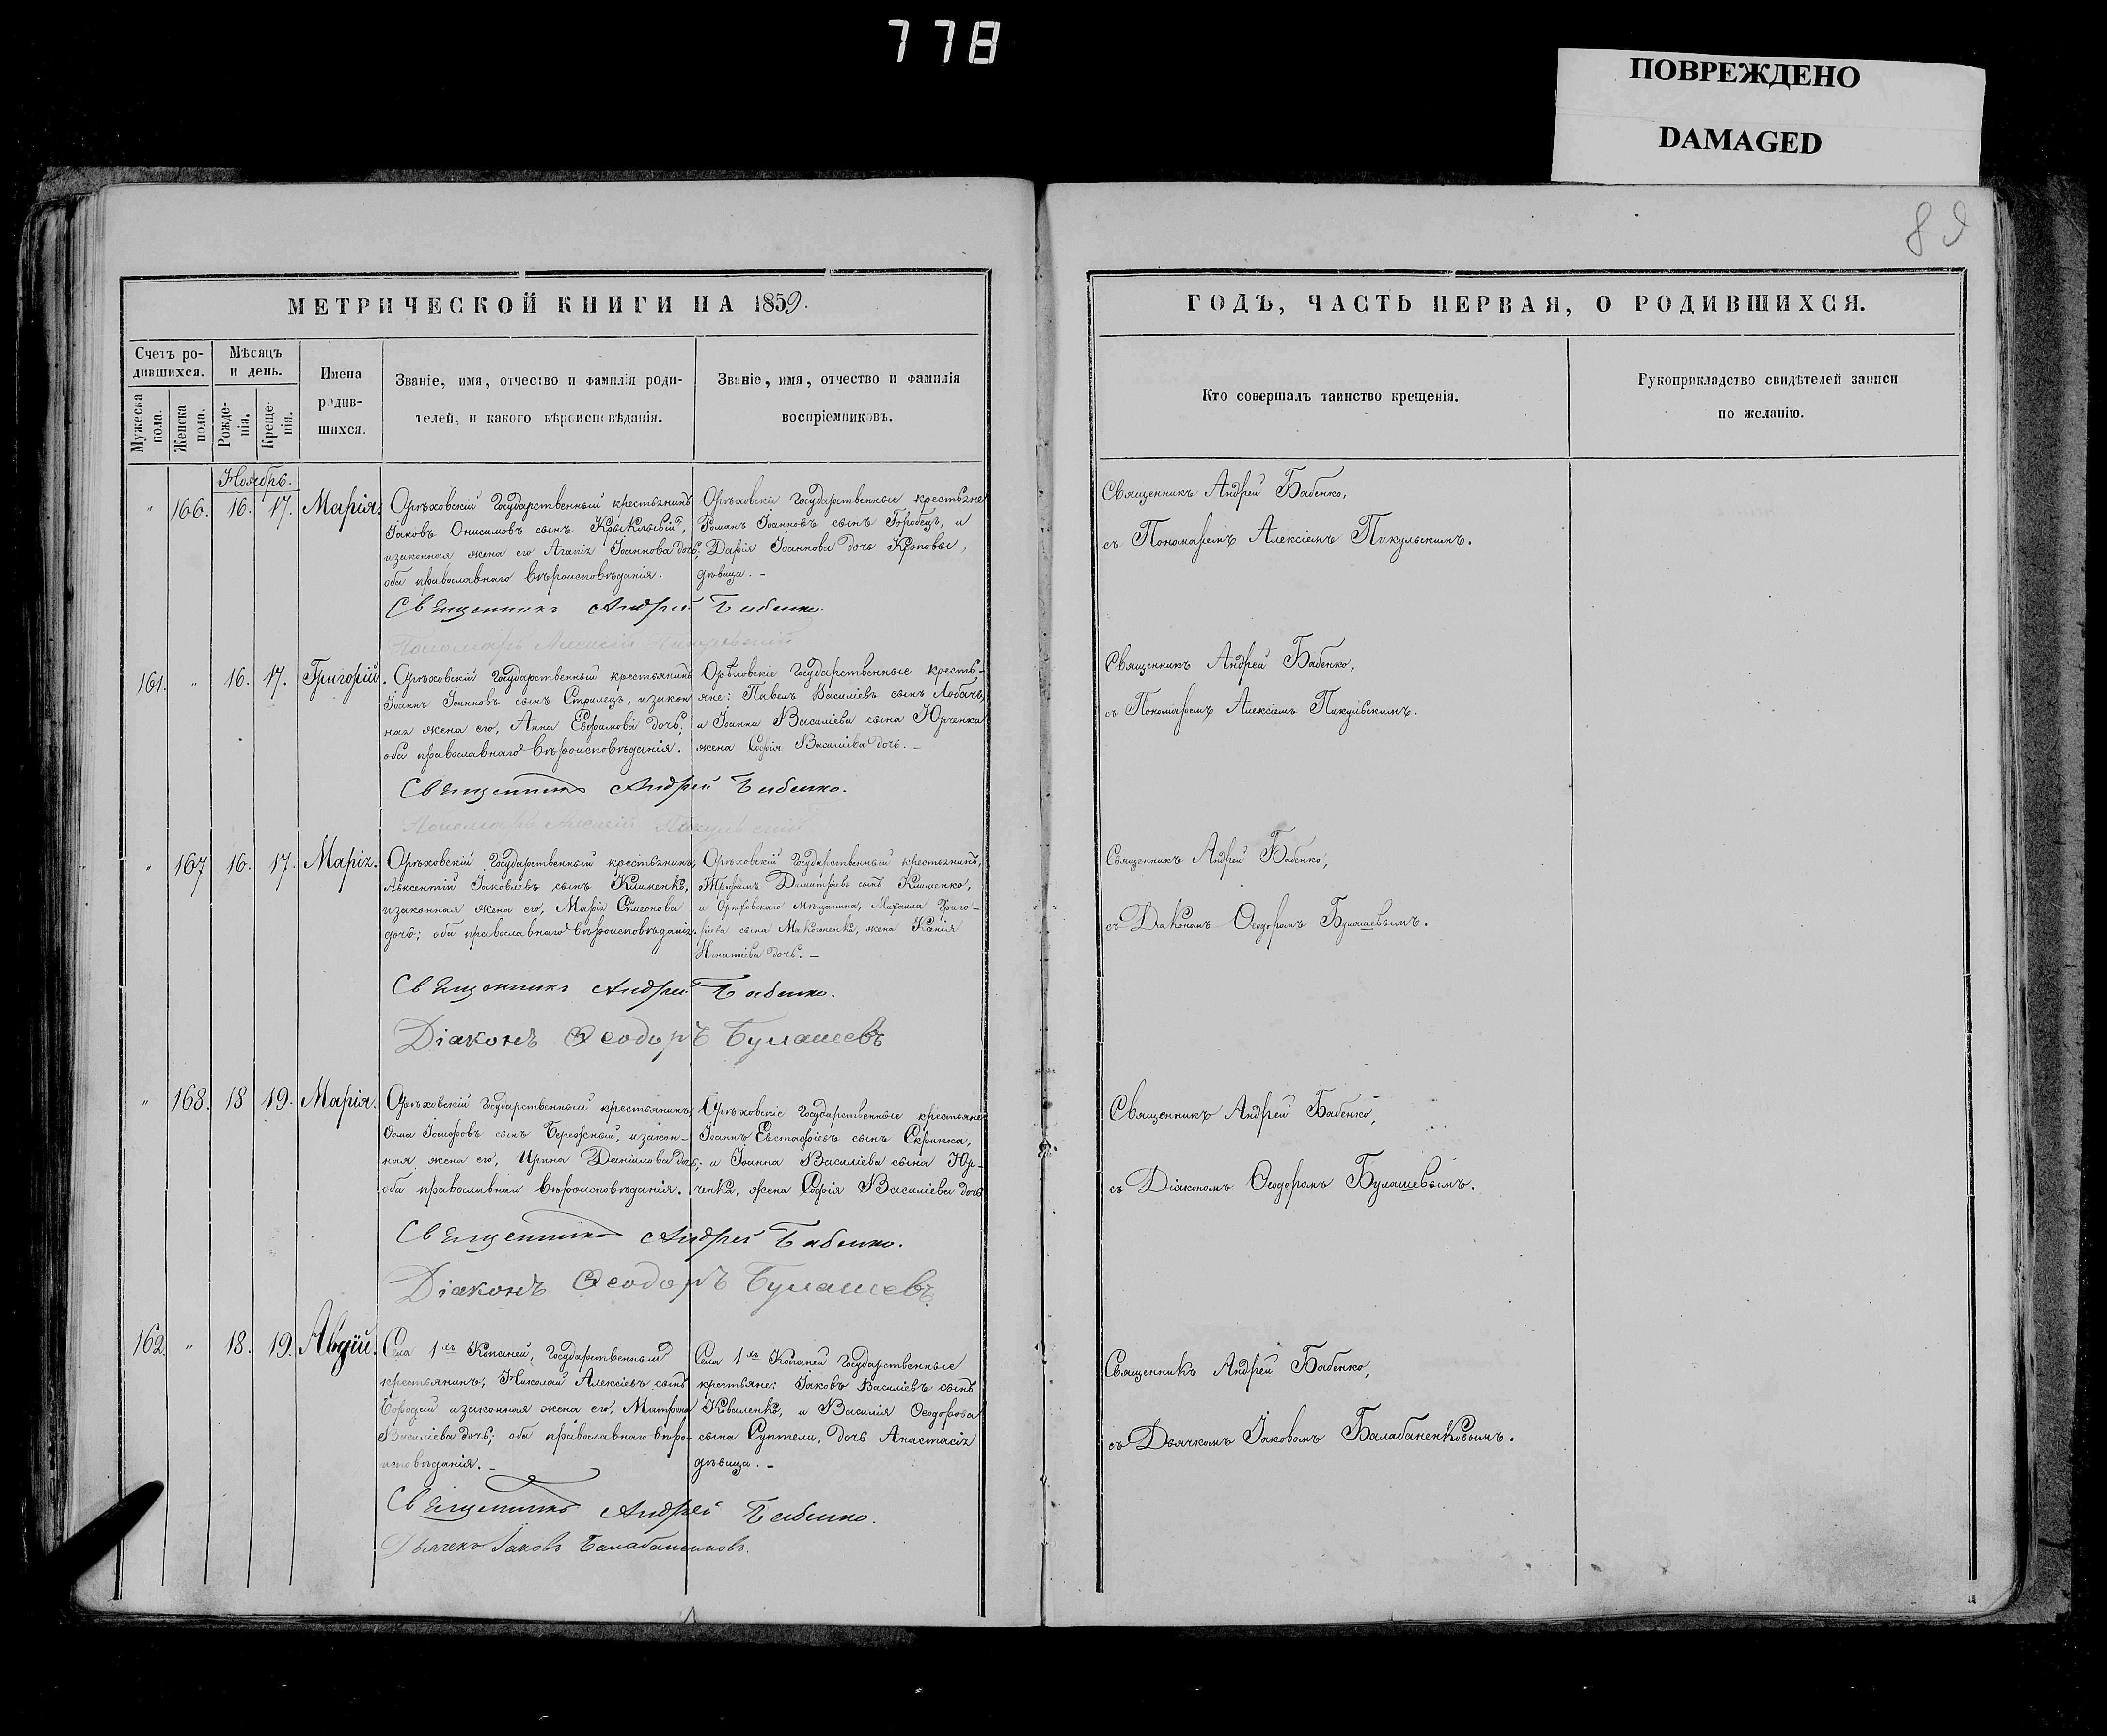 778
ПОВРЕЖДЕНО
DAMAGED
89
МЕТРИЧЕСКОЙ КНИГИ НА 1859.
Счетъ ро-
дившихся.
Мѣсяцъ
и день.
Мужеска
пола.
Женска
пола.
Рожде-
нія.
Креще-
нія.
Имена
родив-
шихся.
Званіе, имя, отчество и фамилія роди-
телей, и какого вѣроисповѣданія.
Званіе, имя, отчество и фамилія
воспріемниковъ.
Ноябрь.
" 166. 16. 17. Марія.
Орѣховскій Государственный крестьянинъ
Іаковъ Онисимовъ сынъ
изаконная жена его Агапія Іоаннова дочь;
оба православнаго вѣроисповѣданія.
Орѣховскіе Государственные крестьяне
Романъ Іоанновъ сынъ Городецъ, и
Дарія Іоаннова дочь
дѣвица. –
Священникъ Андрей Бабенко.
Пономарь Алексій Пикульскій
161. " 16. 17. Григорій.
Орѣховскій Государственный крестьянинъ
Іоаннъ Іоанновъ сынъ Стрилецъ, изакон
ная жена его, Анна Евфимова дочь;
оба православнаго вѣроисповѣданія.
Орѣховскіе Государственные кресть-
яне: Павелъ Василіевъ сынъ Лобачъ,
и Іоанна Василіева сына Юрченка
жена Софія Василіева дочь. –
Священникъ Андрей Бабенко.
Пономарь Алексій Пикульскій
" 167 16. 17. Марія.
Орѣховскій Государственный крестьянинъ,
Авксентій Іаковлевъ сынъ Клименко,
изаконная жена его, Марія Симеонова
дочь; оба православнаго вѣроисповѣданія.
Орѣховскій Государственный крестьянинъ,
Димитріевъ сынъ Клименко,
и Орѣховскаго Мѣщанина, Михаила Григо-
ріева сына жена
Игнатіева дочь. –
Священникъ Андрей Бабенко.
Діаконъ Ѳеодоръ Булашевъ
" 168. 18 19. Марія.
Орѣховскій Государственный крестьянинъ
Ѳома сынъ Бережный, изакон-
ная жена его, Ирина Даніилова дочь;
оба православнаго вѣроисповѣданія.
Орѣховскіе Государственные крестьяне
Іоаннъ Евстафіевъ сынъ Скрипка,
и Іоанна Василіева сына Юр-
ченка, жена Софія Василіева дочь
Священникъ Андрей Бабенко.
Діаконъ Ѳеодоръ Булашевъ
162. " 18. 19. Авдій.
Села 1хъ Копаней, Государственный
крестьянинъ, Николай Алексіевъ сынъ
изаконная жена его, Матрона
Василіева дочь; оба православнаго вѣро-
исповѣданія. –
Села 1хъ Копаней Государственные
крестьяне: Іаковъ Василіевъ сынъ
Коваленко, и Василія Ѳеодорова
сына дочь Анастасія
дѣвица. –
Священникъ Андрей Бабенко.
Дьячекъ Іаковъ Балабаненковъ.
ГОДЪ, ЧАСТЬ ПЕРВАЯ, О РОДИВШИХСЯ.
Кто совершалъ таинство крещенія.
Рукоприкладство свидѣтелей записи
по желанію.
Священникъ Андрей Бабенко,
съ Пономаремъ Алексіемъ Пикульскимъ.
Священникъ Андрей Бабенко,
съ Пономаремъ Алексіемъ Пикульскимъ.
Священникъ Андрей Бабенко,
съ Діакономъ Ѳеодоромъ Булашевымъ.
Священникъ Андрей Бабенко,
съ Діакономъ Ѳеодоромъ Булашевымъ.
Священникъ Андрей Бабенко,
съ Дьячкомъ Іаковомъ Балабаненковымъ.